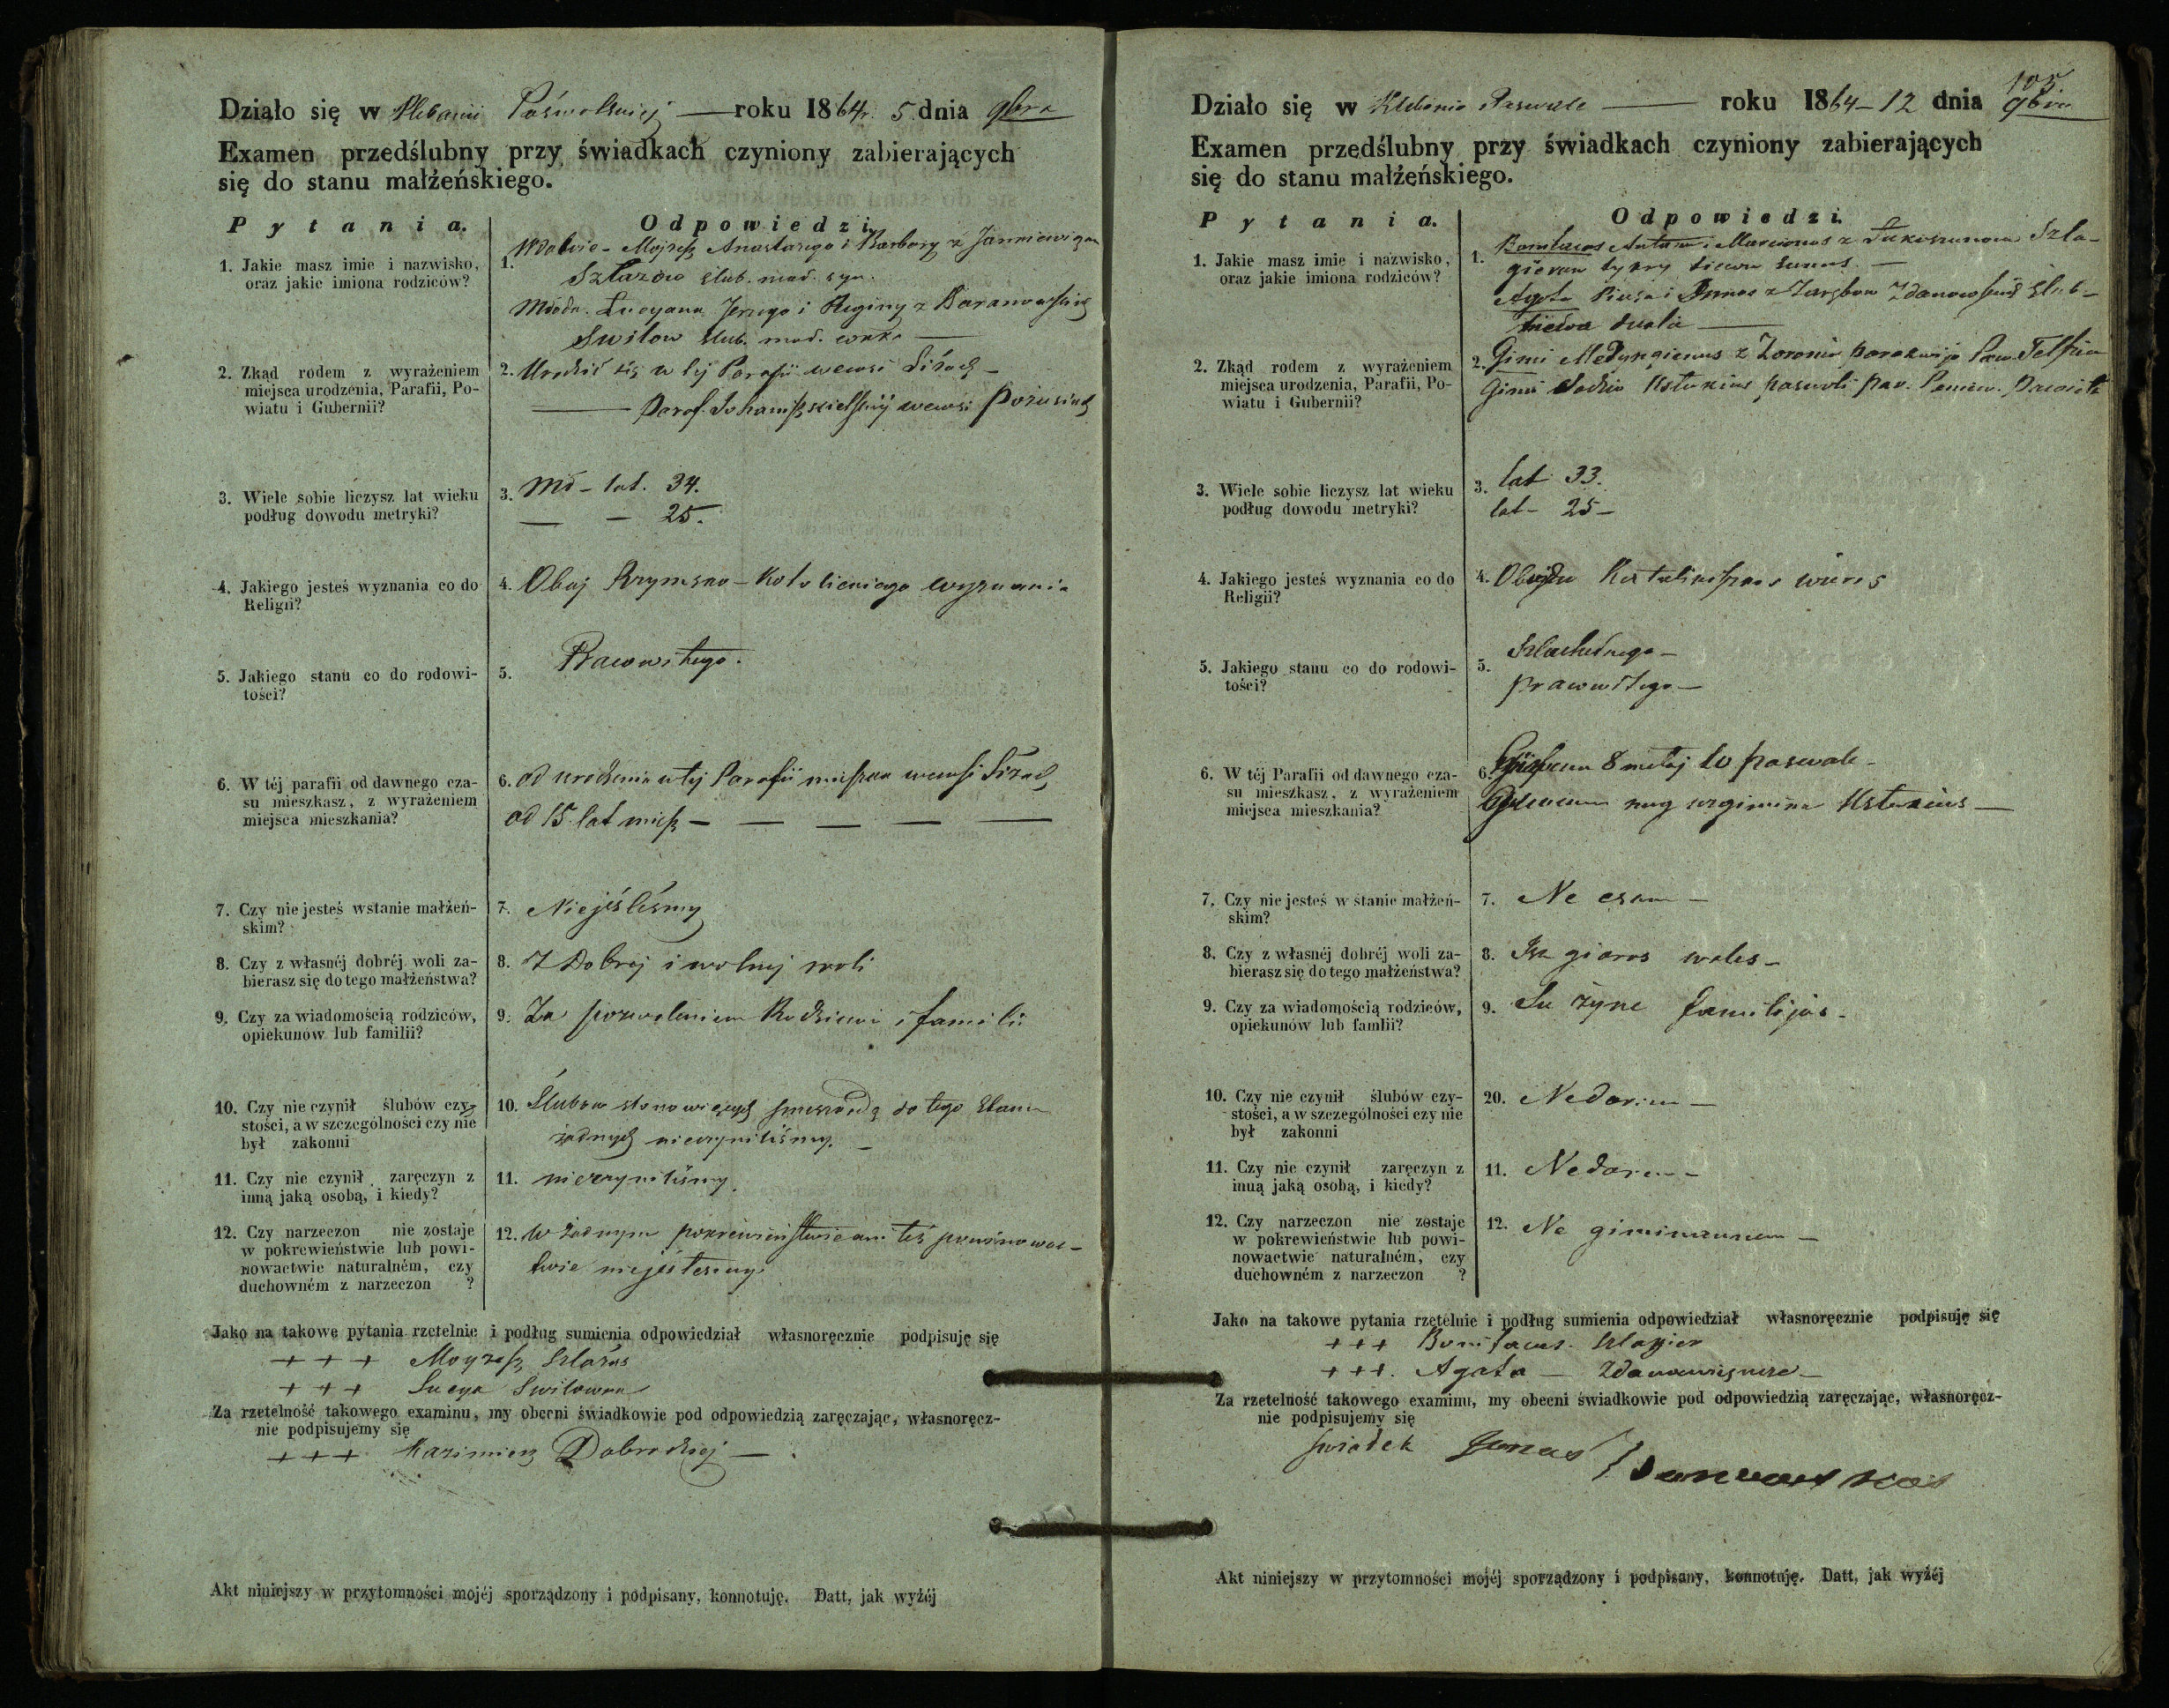 Działo się w Plebanii Poświolskiej — roku 1864 r. 5 dnia 9bra
Examen przedślubny przy świadkach czyniony zabierających
się do stanu małżeńskiego.
Pytania. Odpowiedzi.
1. Jakie masz imie i nazwisko, oraz jakie imiona rodziców?
1. Wdowie - Mojżesz Anastazego i Barbary z Janniewiczow
Szlazow ślub. mał. syn.
Młoda. Lucyana Jerzego i Reginy z Baranowskich
Swilow ślub. mał. corka
2. Zkąd rodem z wyrażeniem
miejsca urodzenia, Parafii, Po-
wiatu i Gubernii?
2. Urodził się w tej Parafii we wsi
Paraf. we wsi
3. Wiele sobie liczysz lat wieku
podług dowodu metryki?
3. Mł - lat. 34.
— — 25.
4. Jakiego jesteś wyznania co do
Religii?
4. Obaj Rzymsko-Katolickiego wyznania
5. Jakiego stanu co do rodowi-
tości?
5. Prawowitego.
6. W téj parafii od dawnego cza-
su mieszkasz, z wyrażeniem
miejsca mieszkania?
6. od urodzenia w tej Parafii mieszka we wsi
od 15 lat miesz — — — — —
7. Czy nie jesteś wstanie małżeń-
skim?
7. Niejésteśmy
8. Czy z własnéj dobréj woli za-
bierasz się do tego małżeństwa?
8. Z Dobrej i wolnej woli
9. Czy za wiadomością rodziców,
opiekunów lub familii?
9. Za pozwoleniem Rodziców i familii
10. Czy nie czynił ślubów czy-
stości, a w szczególności czy nie
był zakonni
10. Ślubów stanowiących przeszkodę do tego stanu
żadnych nieczyniliśmy. —
11. Czy nie czynił zaręczyn z
inną jaką osobą, i kiedy?
11. nieczyniliśmy.
12. Czy narzeczon nie zostaje
w pokrewieństwie lub powi-
nowactwie naturalném, czy
duchowném z narzeczon ?
12. w żadnym pokrewieństwie ani też powinowac-
twie niejésteśmy.
Jako na takowe pytania rzetelnie i podług sumienia odpowiedział własnoręcznie podpisuję się
+ + + Moyzesz Szlażas
+ + + Lucya Swilowna
Za rzetelność takowego examinu, my obecni świadkowie pod odpowiedzią zaręczając, własnoręcz-
nie podpisujemy się
+ + + Kazimierz Dobrodziej —
Akt niniejszy w przytomności mojéj sporządzony i podpisany, konnotuję. Datt, jak wyżéj
105
Działo się w Klebonie Paswale — roku 1864 - 12 dnia 9bra
Examen przedślubny przy świadkach czyniony zabierających
się do stanu małżeńskiego.
Pytania. Odpowiedzi.
1. Jakie masz imie i nazwisko,
oraz jakie imiona rodziców?
1. Bonifacas Antana i Marcionos z Szla-
gieru tykry tiewu sunus —
Agota Piusa i Annos z Zarębow Zdanowskich ślub-
tiewa dukte —
2. Zkąd rodem z wyrażeniem
miejsca urodzenia, Parafii, Po-
wiatu i Gubernii?
2. Gimi z parakwijo Paw. Telszu
Gimi Sodzio paswoli paw. Paniew.
3. Wiele sobie liczysz lat wieku
podług dowodu metryki?
3. lat 33.
lat - 25 -
4. Jakiego jesteś wyznania co do
Religii?
4. wieros
5. Jakiego stanu co do rodowi-
tości?
5. Szlachetnego —
prawowitego —
6. W téj Parafii od dawnego cza-
su mieszkasz, z wyrażeniem
miejsca mieszkania?
6. 8 metaj to paswale -
nug uzgimima
7. Czy nie jesteś w stanie małżeń-
skim?
7. Ne esam —
8. Czy z własnéj dobréj woli za-
bierasz się do tego małżeństwa?
8. Isz gieros wales —
9. Czy za wiadomością rodziców,
opiekunów lub famlii?
9. Su żyne familijos -
10. Czy nie czynił ślubów czy-
stości, a w szczególności czy nie
był zakonni
20. Nedariem —
11. Czy nie czynił zaręczyn z
inną jaką osobą, i kiedy?
11. Nedariem —
12. Czy narzeczon nie zostaje
w pokrewieństwie lub powi-
nowactwie naturalném, czy
duchowném z narzeczon ?
12. Ne —
Jako na takowe pytania rzetelnie i podług sumienia odpowiedział własnoręcznie podpisuję się
+ + + Bonifacas. Szlagier
+ + +. Agata —
Za rzetelność takowego examinu, my obecni świadkowie pod odpowiedzią zaręczając, własnoręcz-
nie podpisujemy się
swiadek Jonas
Akt niniejszy w przytomności mojéj sporządzony i podpisany, konnotuję. Datt, jak wyżéj